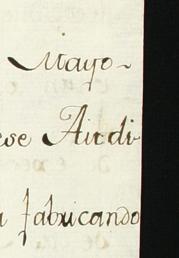 Mayo-
ese Airdi
a fabricando